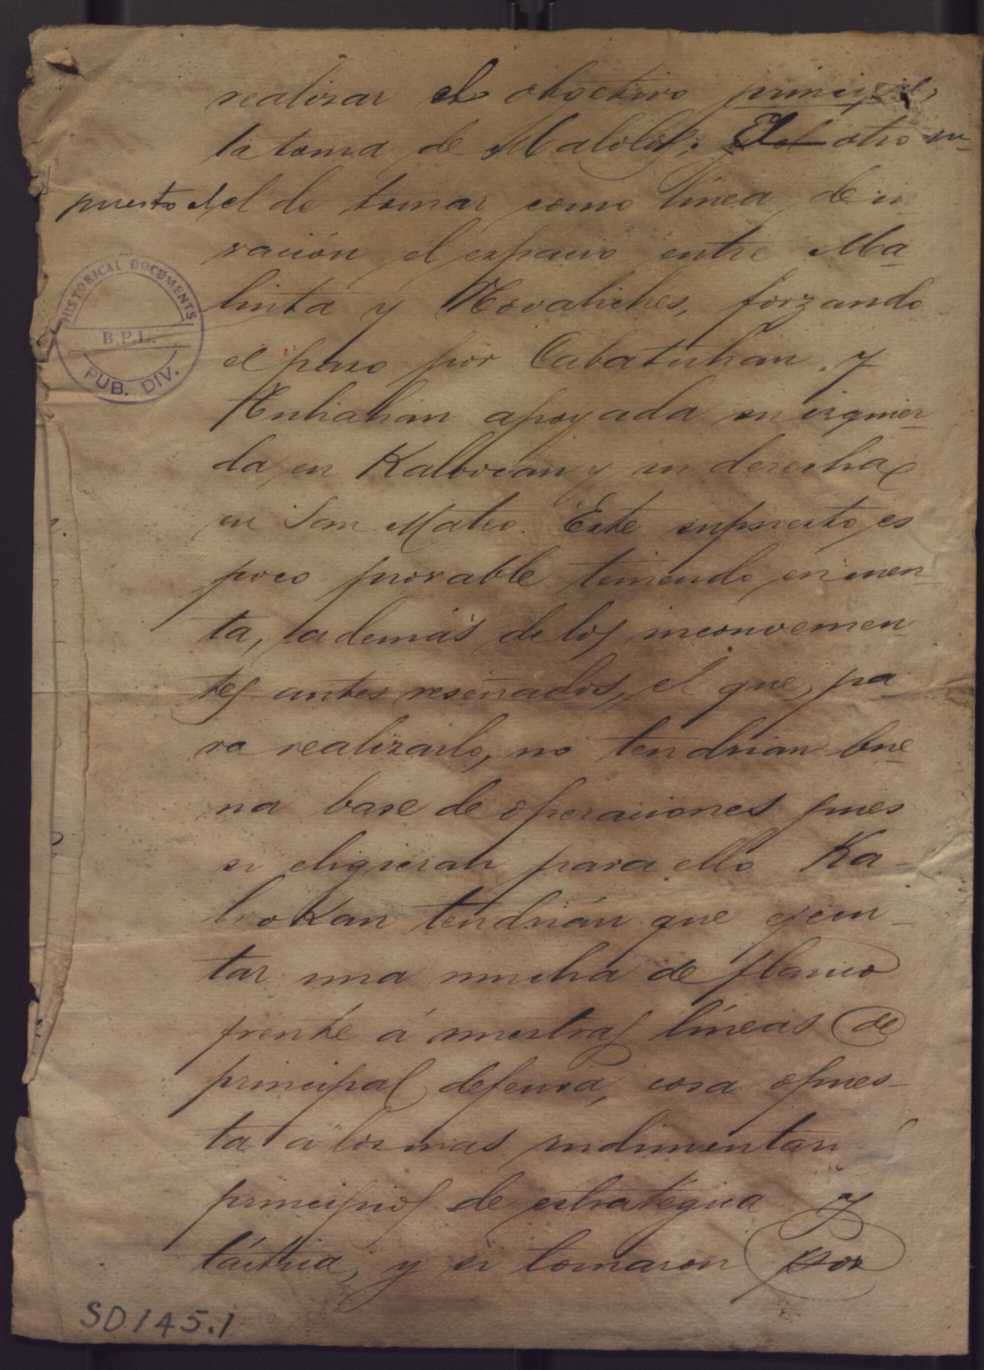 realizar el objetivo principal,
la toma de Malolos; El otro su-
puesto el el de tomar como línea de in
vación el espacio entre Ma-
linta y Novaliches, forzando
el paso por Cabatuhan y
apoyada su izquier-
da en Kaloocan y su derecha
en San Mateo. Este supuesto es
poco provable teniendo en cuen-
ta, además de los inconvenien
tes antes reseñados, el que, pa
ra realizarlo, no tendrian bue
na base de operaciones pues
si eligieran para ello Ka-
lookan tendrián que ejecu-
tar una mucha de flanco
frente á nuestras líneas de
principal defensa, cosa opues-
ta a los mas rudimentari
principios de estrategica y
táctica, y si tomaron por
HISTORICAL DOCUMENTS
B.P.L.
PUB. DIV.
SD145.1